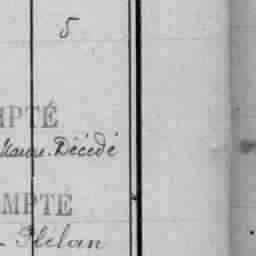 5
MPTÉ
Décédé
MPTÉ
Plélan